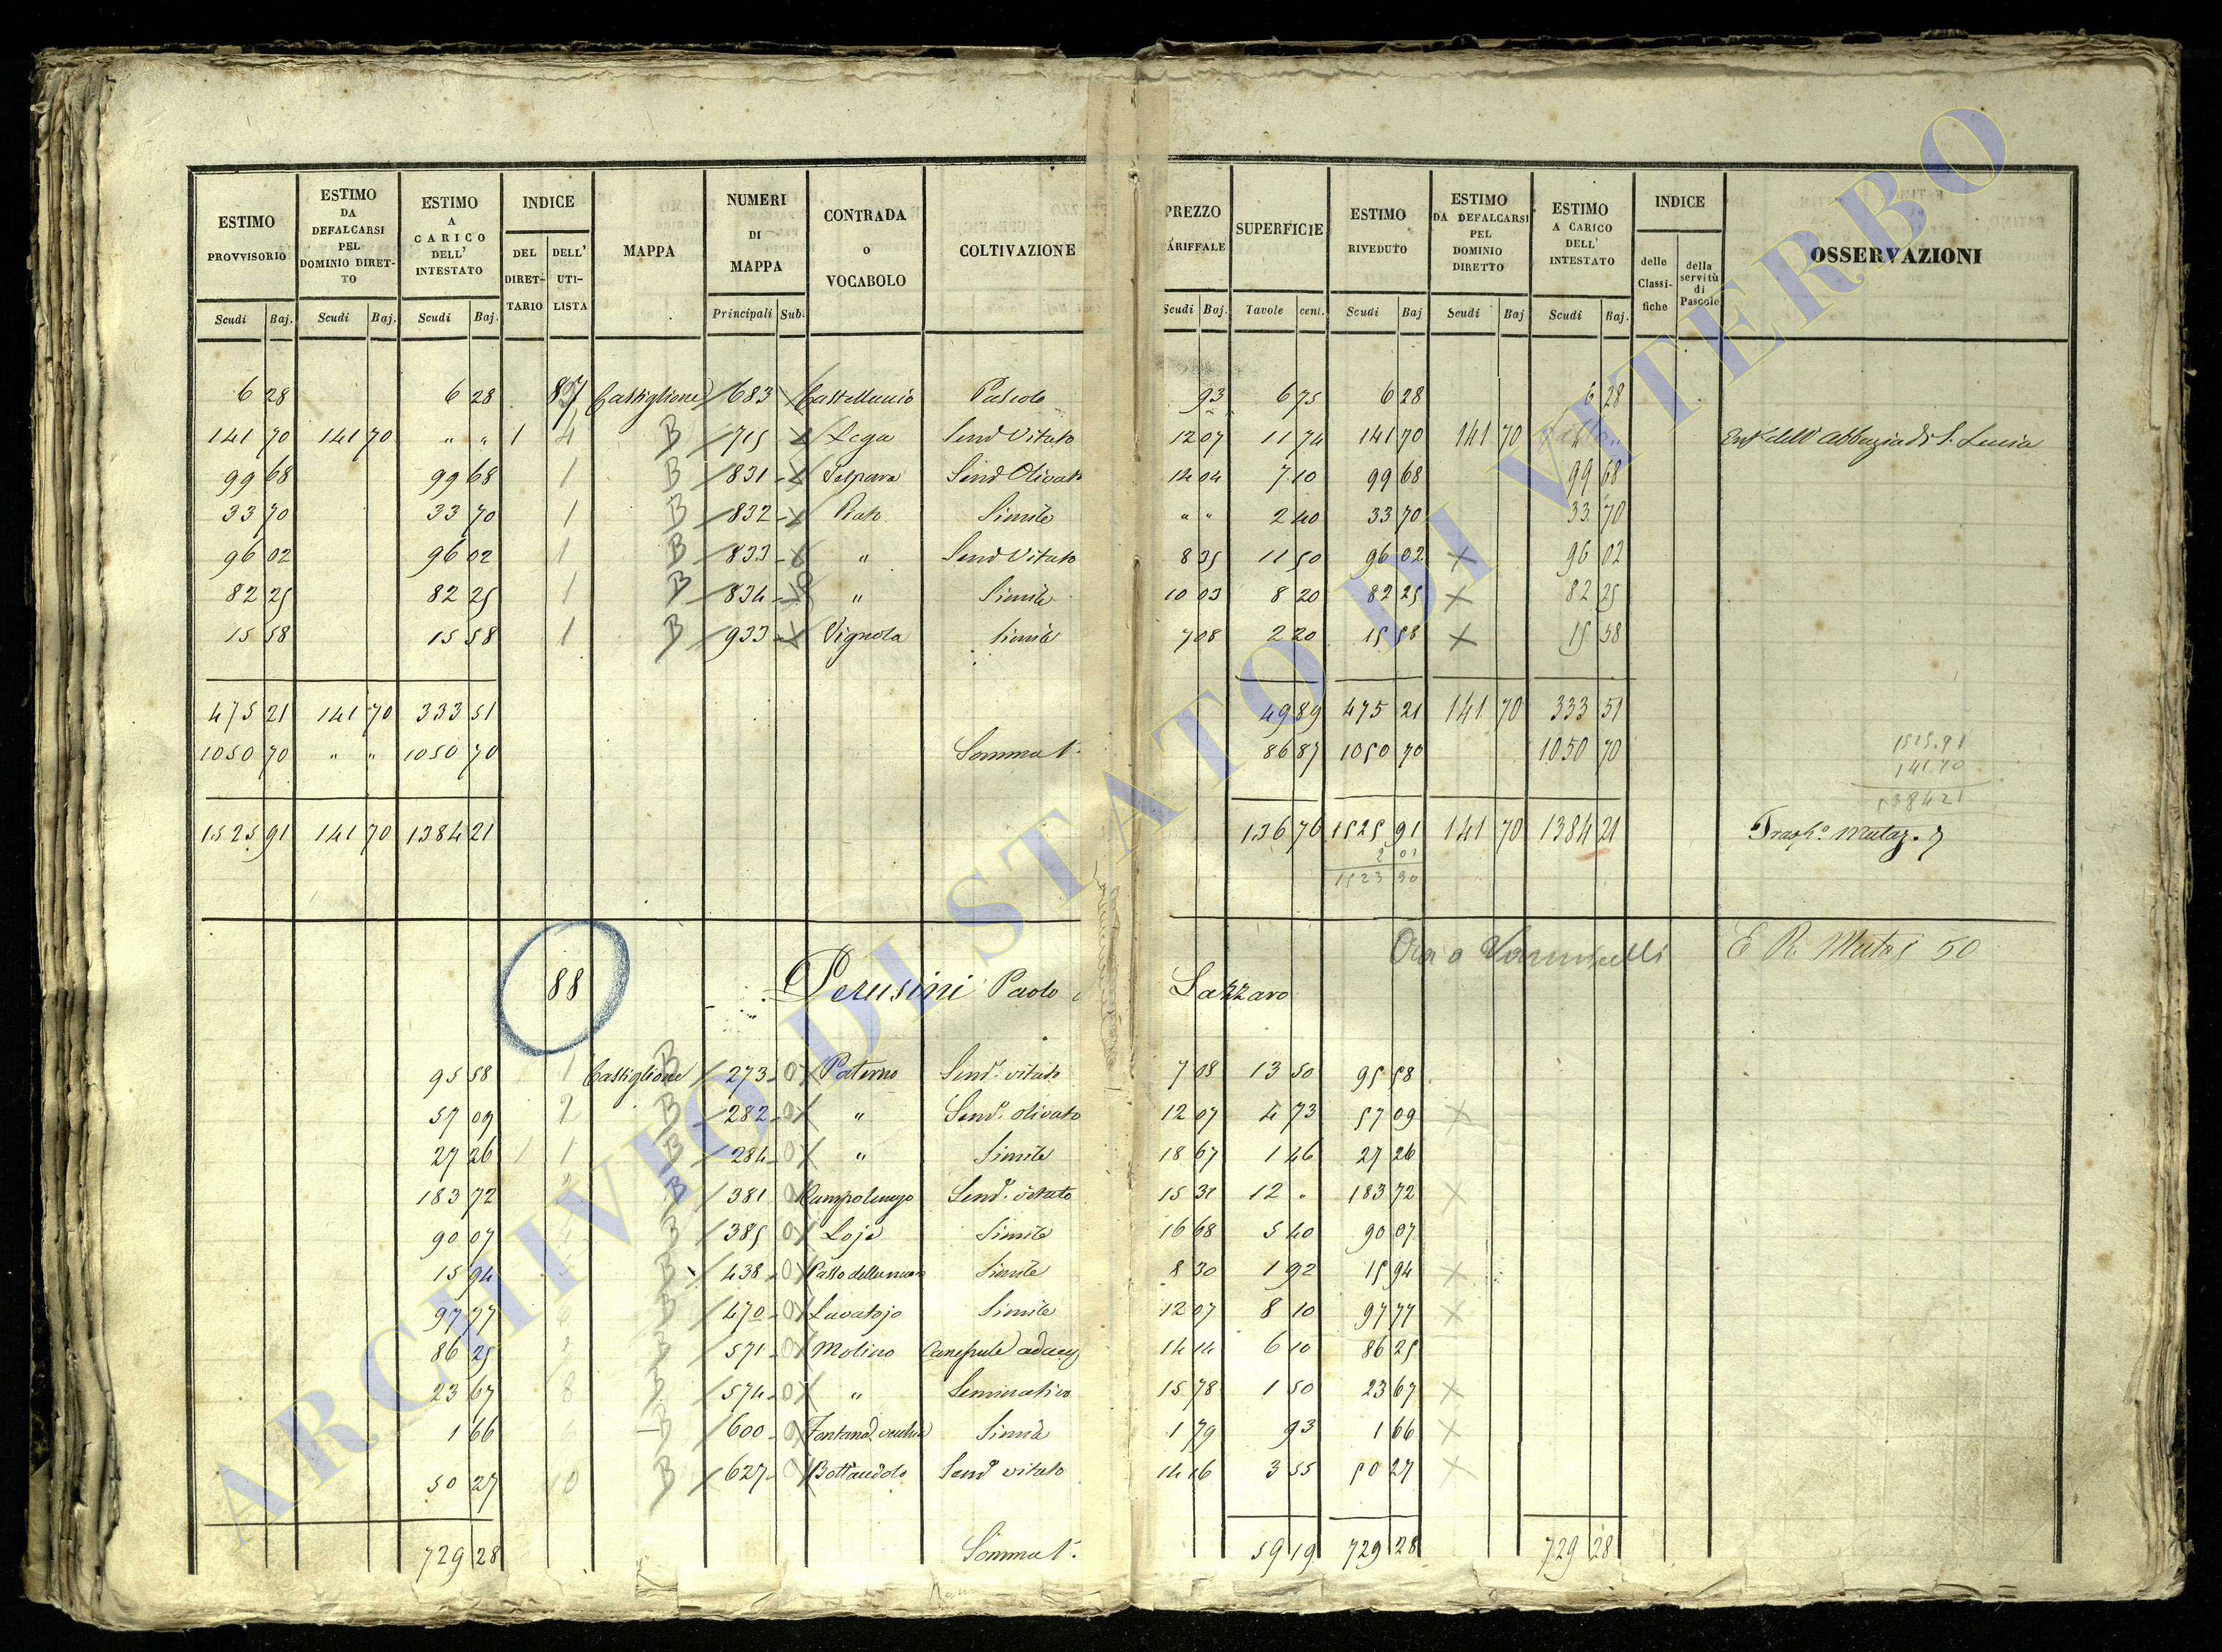 ESTIMO PROVVISORIO Scudi Baj. ESTIMO DA DEFALCARSI PEL DOMINIO DIRETTO Scudi Baj. ESTIMO A CARICO DELL' INTESTATO Scudi Baj. INDICE DEL DIRETTARIO DELL' UTILISTA MAPPA NUMERI DI MAPPA Principali Sub. CONTRADA o VOCABOLO COLTIVAZIONE PREZZO TARIFFALE Scudi Baj. SUPERFICIE Tavole cent. ESTIMO RIVEDUTO Scudi Baj ESTIMO DA DEFALCARSI PEL DOMINIO DIRETTO Scudi Baj ESTIMO A CARICO DELL' INTESTATO Scudi Baj. INDICE delle Classifiche della servitù di Pascolo OSSERVAZIONI
6 28 6 28 87 Castiglione 683 Castelluccio Pascolo 93 6 75 6 28 6 28
141 70 141 70 " " 1 4 B 715 Lega Semo Vitato 12 07 11 74 141 70 141 70 Enf. dell' Abbazia di S. Lucia
99 68 99 68 1 B 831 Semo Olivato 14 04 7 10 99 68 99 68
33 70 33 70 1 B 832 Prato Simile " " 2 40 33 70 33 70
96 02 96 02 1 B 833 " Semo Vitato 8 35 11 50 96 02 X 96 02
82 25 82 25 1 B 834 " Simile 10 03 8 20 82 25 X 82 25
15 58 15 58 1 B 933 Vignola Simile 7 08 2 20 15 58 X 15 58
475 21 141 70 333 51 49 89 475 21 141 70 333 51
1050 70 " " 1050 70 Somma 86 87 1050 70 1050 70
1525.91
141.70
1384 21
1525 91 141 70 1384 21 136 76 1525 91 141 70 1384 21 Trasp.o Mutaz. 7
2 01
1523 90
88 Perusini Paolo Lazzaro Ora a Vannicelli E R. Mutaz 50
95 58 1 Castiglione B 273 0 Paterno Semo vitato 7 08 13 50 95 58
57 09 2 B 282 0 " Semo olivato 12 07 4 73 57 09 X
27 26 1 1 B 284 0 " Simile 18 67 1 46 27 26
183 72 B 381 0 Campolungo Semo vitato 15 31 12 " 183 72 X
90 07 B 385 0 Loja Simile 16 68 5 40 90 07
15 94 B 438 0 Simile 8 30 1 92 15 94 X
97 77 B 470 0 Lavatojo Simile 12 07 8 10 97 77 X
86 25 B 571 0 Molino Canepule 14 14 6 10 86 25
23 67 8 B 574 0 " Seminativo 15 78 1 50 23 67 X
1 66 B 600 0 Fontana vecchia Simile 1 79 93 1 66 X
50 27 10 B 627 0 Semo vitato 14 16 3 55 50 27 X
729 28 Somma 59 19 729 28 729 28
ARCHIVIO DI STATO DI VITERBO